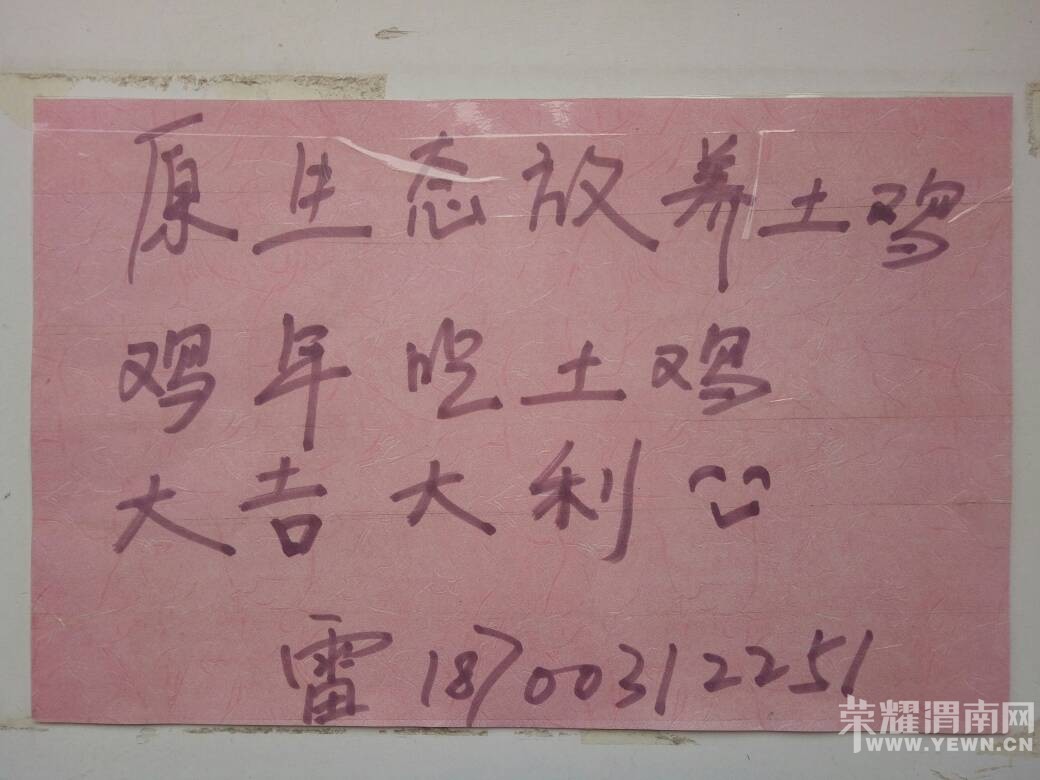 原生态放养土鸡
鸡年吃土鸡
大吉大利
雷 18700312251
荣耀渭南网
WWW.YEWN.CN